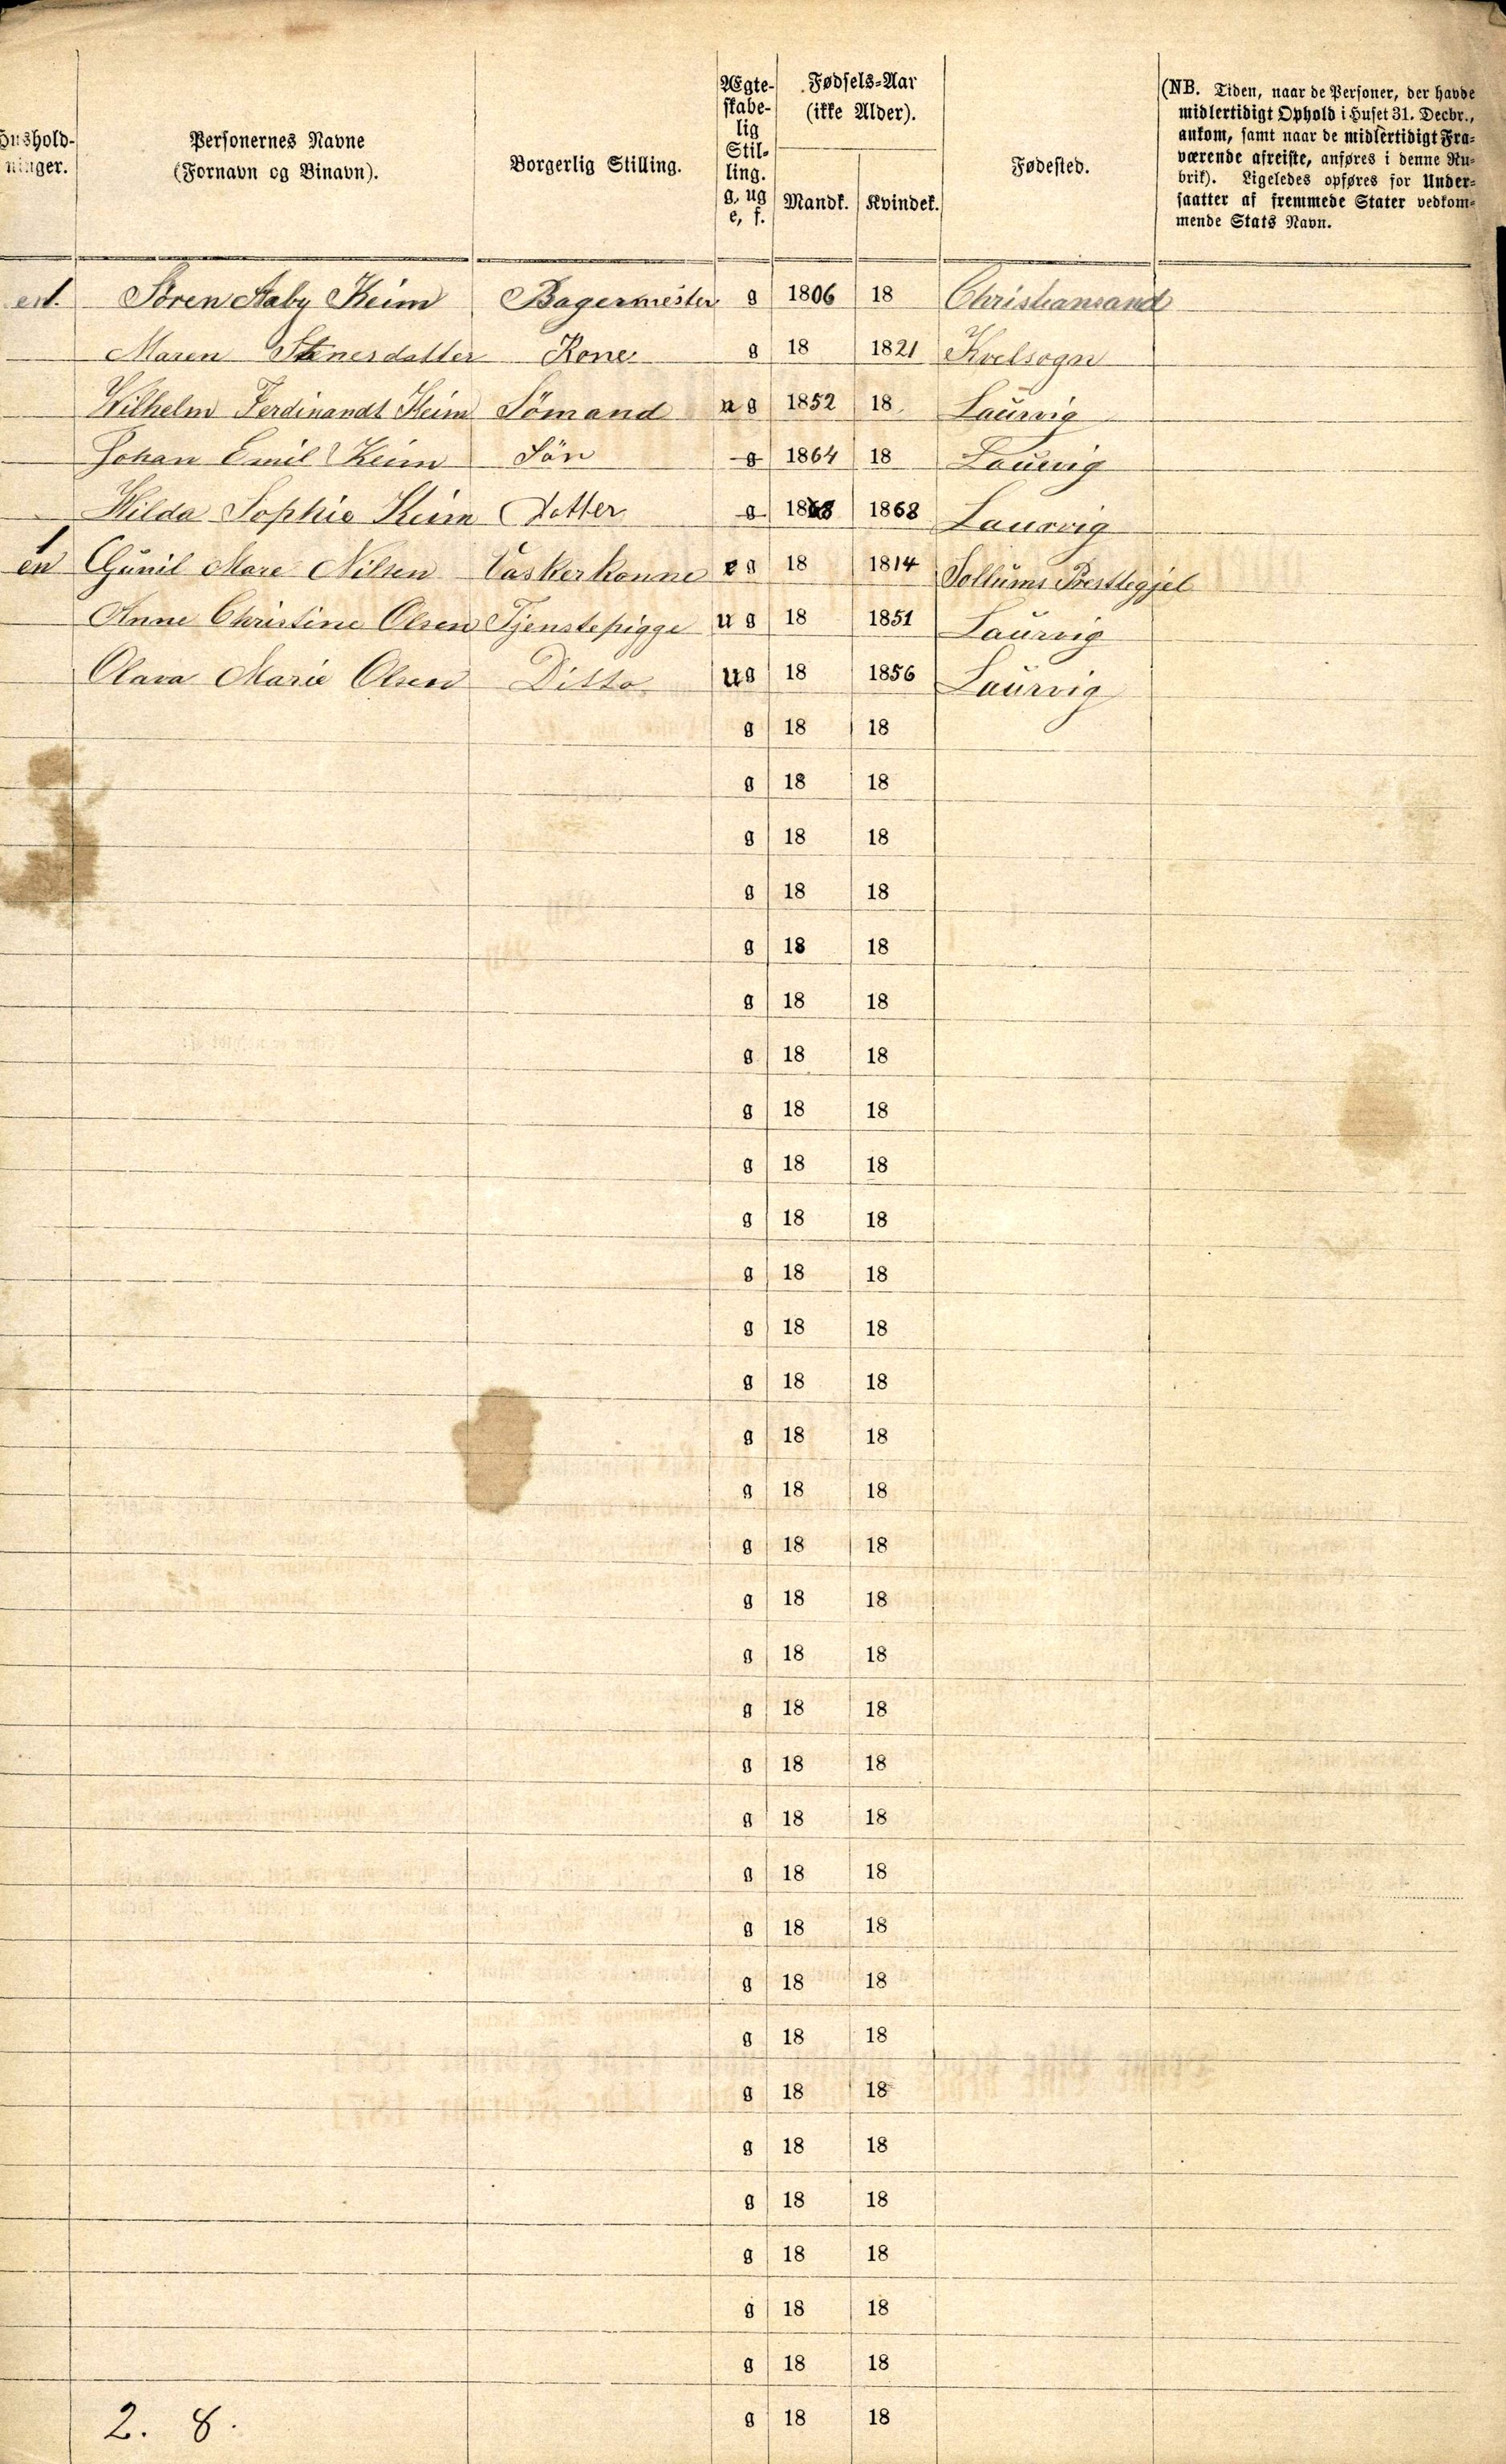 Hushold-
ninger.
Personernes Navne
(Fornavn og Binavn).
Borgerlig Stilling.
Ægte-
skabe-
lig
Stil-
ling.
g, ug
e, f.
Fødsels-Aar
(ikke Alder).
Mandk.
Kvindek.
Fødested.
(NB. Tiden, naar de Personer, der havde
midlertidigt Ophold i Huset 31. Decbr.,
ankom, samt naar de midlertidigt Fra-
værende afreiste, anføres i denne Ru-
brik). Ligeledes opføres for Under-
saatter af fremmede Stater vedkom-
mende Stats Navn.
en 1. Sören Aaby Keim Bagermester g 1806 18 Christiansand
Maren Stenersdatter Kone g 18 1821 Kvelsogn
Wilhelm Ferdinandt Keim Sömand ug 1852 18 Laurvig
Johan Emil Keim Sön g 1864 18 Laurvig
Hilda Sophie Keim Dotter g 1868 1868 Laurvig
1
en Gunil Mare Nilsen Vaskerkonne e g 18 1814 Sollums Prestegjel
Anne Christine Olsen Tjenstepigge u g 18 1851 Laurvig
Olava Marie Olsen Ditto ug 18 1856 Laurvig
g 18 18
g 18 18
g 18 18
g 18 18
g 18 18
g 18 18
g 18 18
g 18 18
g 18 18
g 18 18
g 18 18
g 18 18
g 18 18
g 18 18
g 18 18
g 18 18
g 18 18
g 18 18
g 18 18
g 18 18
g 18 18
g 18 18
g 18 18
g 18 18
g 18 18
g 18 18
g 18 18
g 18 18
g 18 18
g 18 18
g 18 18
2. 8. g 18 18